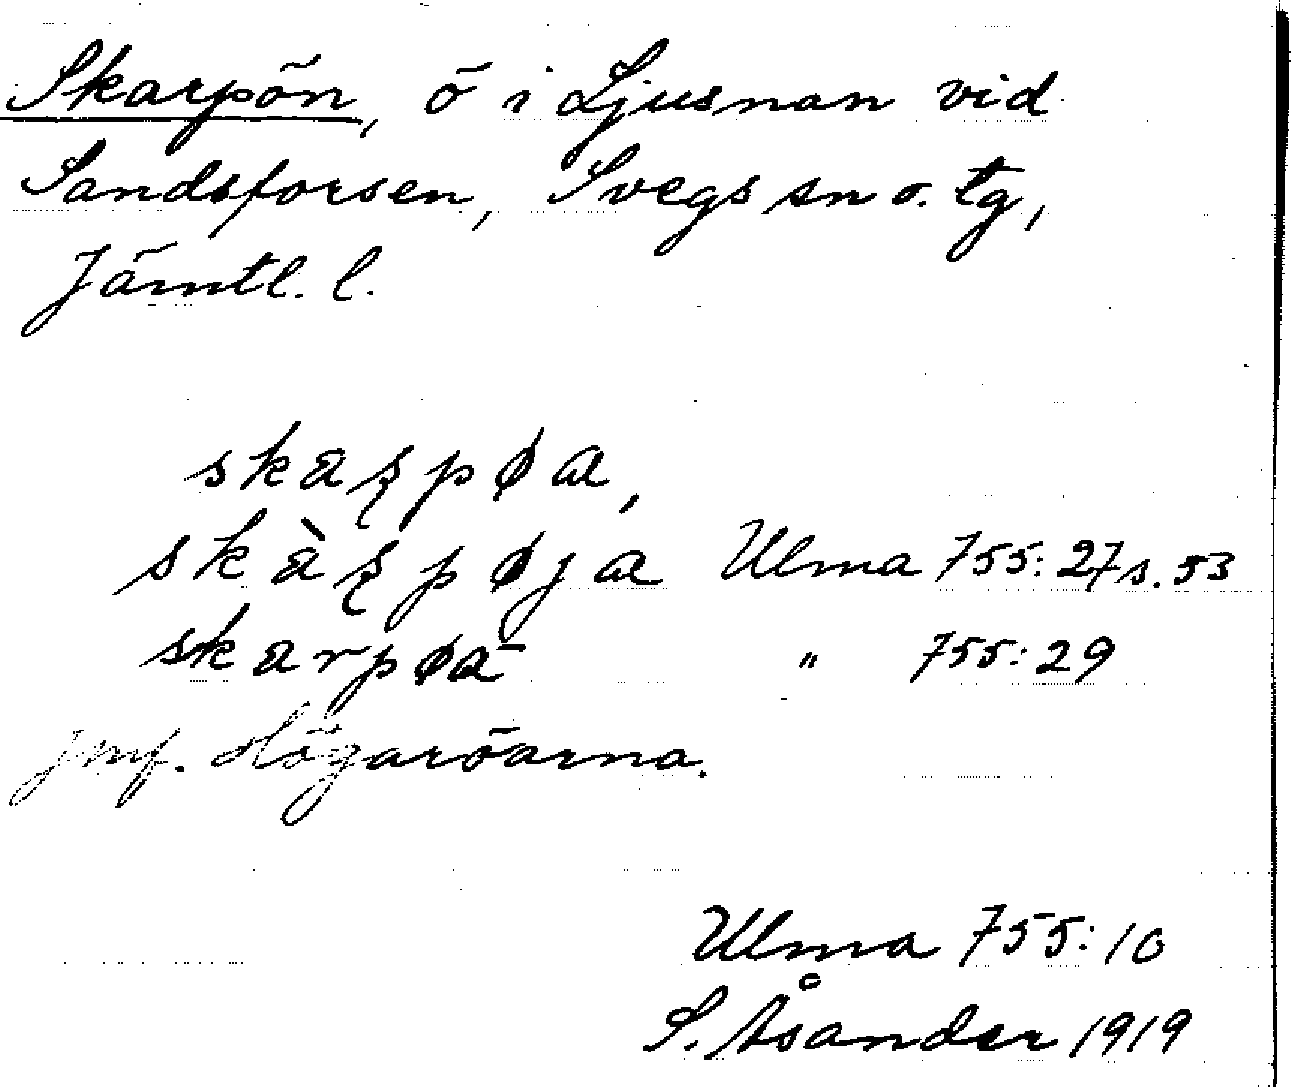 Skarpön, ö i Ljusnan vid
Sandsforsen, Svegs sn o. tg,
Jämtl. l.
skaʂpøa,
skàʂpøja Ulma 755:27 s. 53
skarpøa " 755:29
jmf. Högaröarna.
Ulma 755:10
S. Åsander 1919